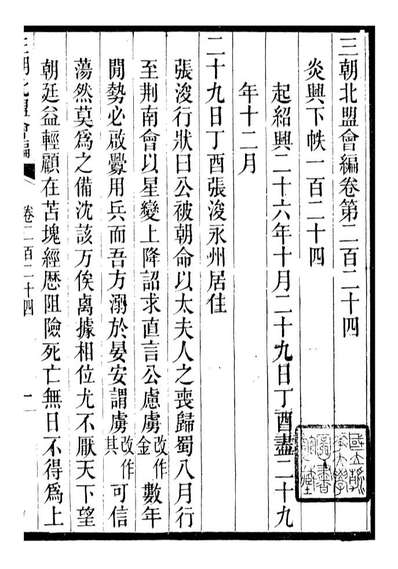 三朝北盟會編卷第二百二十四
炎興下帙一百二十四
起紹興二十六年十月二十九日丁酉盡二十九
年十二月
二十九日丁酉張浚永州居住
張浚行狀曰公被朝命以太夫人之喪歸蜀八月行
至荆南會以星變上降詔求直言公慮虜改作金數年
閒勢必啟釁用兵而吾方溺於晏安謂虜改作其可信
蕩然莫爲之備沈該万俟卨據相位尤不厭天下望
朝廷益輕顧在苦塊經歷阻險死亡無日不得爲上
三朝北盟會編
卷二百二十四
一